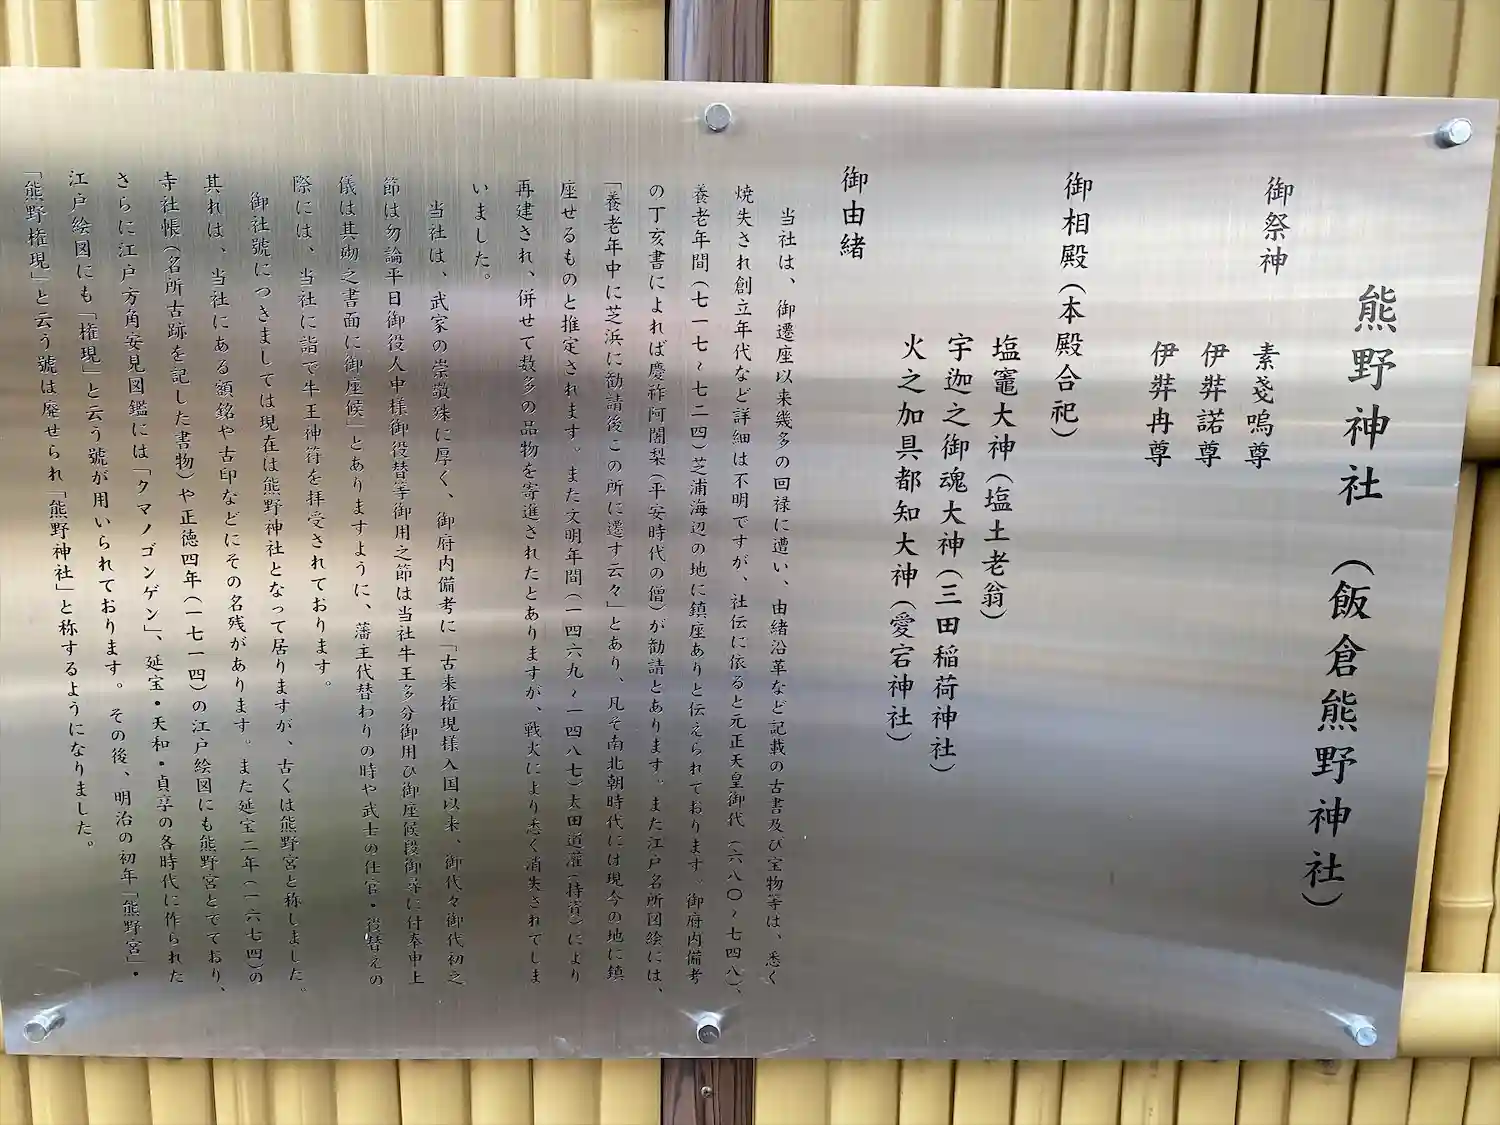 熊野神社（飯倉熊野神社）
御祭神
素戔嗚尊
伊弉諾尊
伊弉冉尊
御相殿（本殿合祀）
塩竈大神（塩土老翁）
宇迦之御魂大神（三田稲荷神社）
火之加具都知大神（愛宕神社）
御由緒
当社は、御遷座以来幾多の回禄に遭い、由緒沿革など記載の古書及び宝物等は、悉く
焼失され創立年代など詳細は不明ですが、社伝に依ると元正天皇御代（六八〇～七四八）、
養老年間（七一七～七二四）芝浦海辺の地に鎮座ありと伝えられております。御府内備考
の丁亥書によれば慶祚阿闍梨（平安時代の僧）が勧請とあります。また江戸名所図絵には、
「養老年中に芝浜に勧請後この所に遷す云々」とあり、凡そ南北朝時代には現今の地に鎮
座せるものと推定されます。また文明年間（一四六九～一四八七）太田道灌（持資）により
再建され、併せて数多の品物を寄進されたとありますが、戦火により悉く消失されてしま
いました。
当社は、武家の崇敬殊に厚く、御府内備考に「古来権現様入国以来、御代々御代初之
節は勿論平日御役人中様御役替等御用之節は当社牛王多分御用ひ御座候段御尋に付奉申上
儀は其砌之書面に御座候」とありますように、藩主代替わりの時や武士の任官・役替えの
際には、当社に詣で牛王神符を拝受されております。
御社號につきましては現在は熊野神社となって居りますが、古くは熊野宮と称しました。
其れは、当社にある額銘や古印などにその名残があります。また延宝二年（一六七四）の
寺社帳（名所古跡を記した書物）や正徳四年（一七一四）の江戸絵図にも熊野宮とでており、
さらに江戸方角安見図鑑には「クマノゴンゲン」、延宝・天和・貞享の各時代に作られた
江戸絵図にも「権現」と云う號が用いられております。その後、明治の初年「熊野宮」・
「熊野権現」と云う號は廃せられ「熊野神社」と称するようになりました。